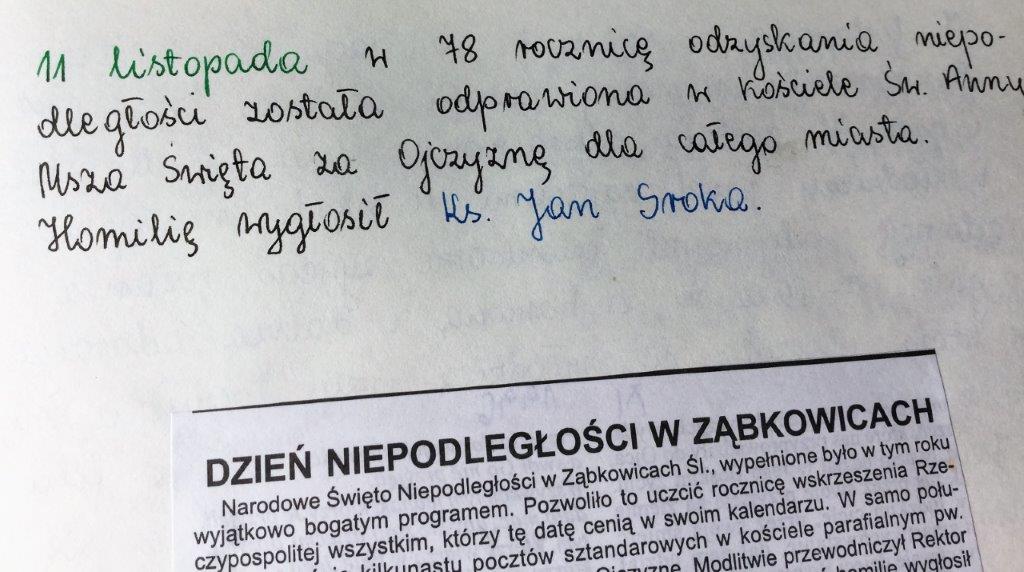 11 listopada w 78 rocznicę odzyskania niepo-
dległości została odprawiona w kościele Św. Anny
Msza Święta za Ojczyznę dla całego miasta.
Homilię wygłosił Ks. Jan Sroka.
DZIEŃ NIEPODLEGŁOŚCI W ZĄBKOWICACH
Narodowe Święto Niepodległości w Ząbkowicach Śl., wypełnione było w tym roku
wyjątkowo bogatym programem. Pozwoliło to uczcić rocznicę wskrzeszenia Rze-
czypospolitej wszystkim, którzy tę datę cenią w swoim kalendarzu. W samo połu-
kilkunastu pocztów sztandarowych w kościele parafialnym pw.
Ojczyznę. Modlitwie przewodniczył Rektor
homilię wygłosił